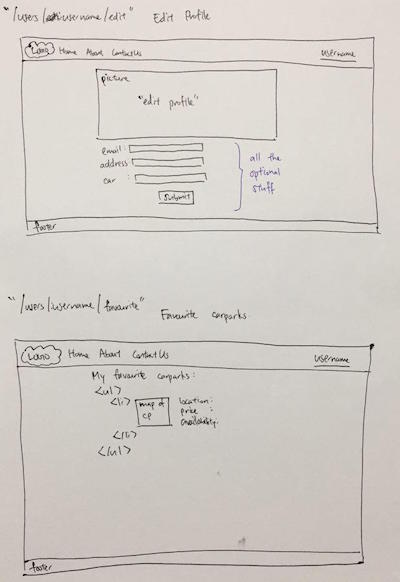 "/users/:username/edit" Edit Profile
Logo Home About Contact Us username
picture
"edit profile"
email:
address
car :
submit
all the
optional
stuff
footer
"/users/:username/favourite" Favourite carparks
Logo Home About Contact Us username
My favourite carparks:
<ul>
<li> map of cp
location:
price :
availability:
</li>
</ul>
footer